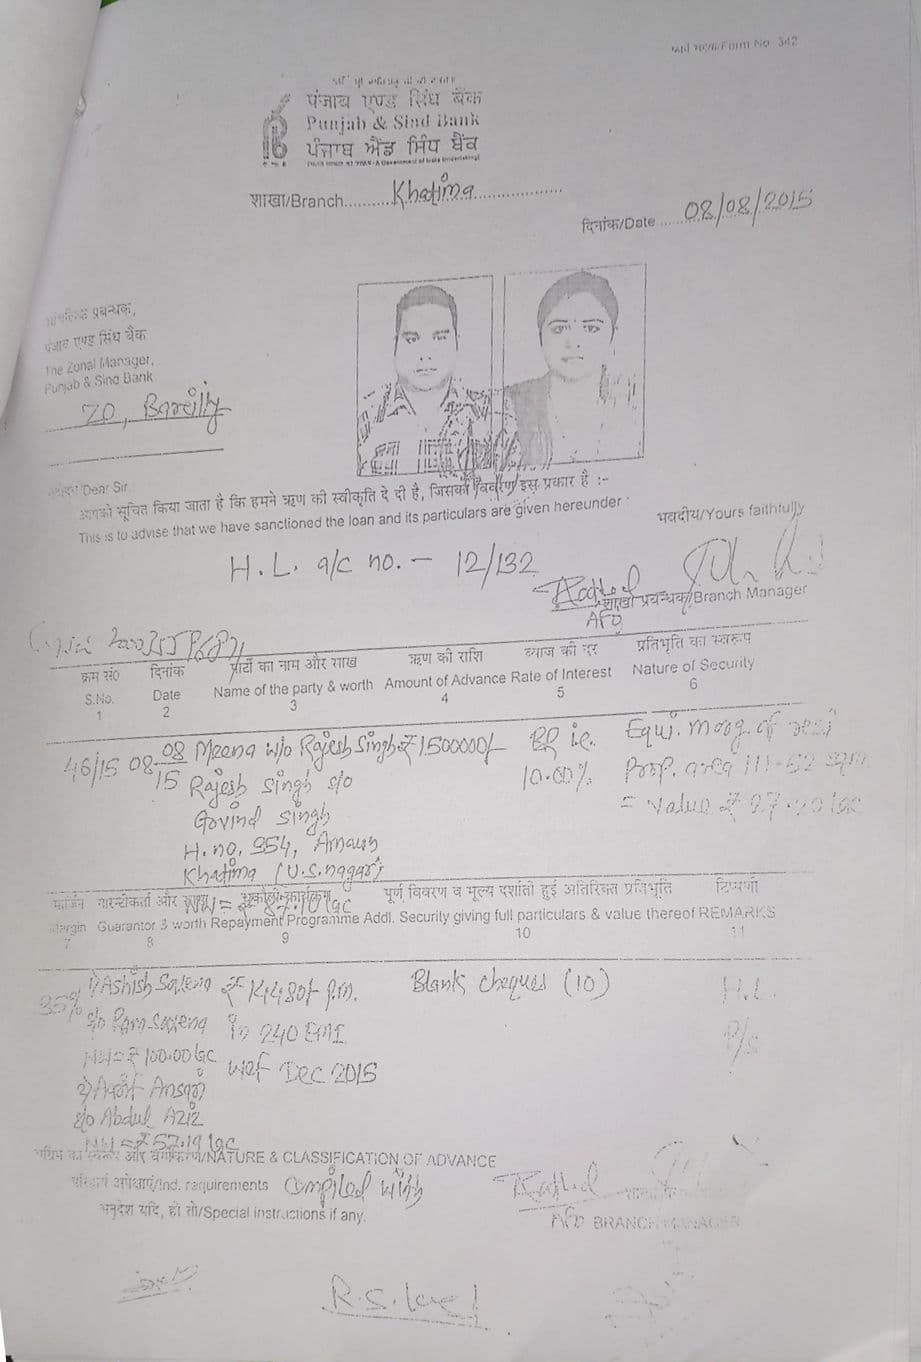 फार्म संख्या/Form No. 342
पंजाब एण्ड सिंध बैंक
Punjab & Sind Bank
ਪੰਜਾਬ ਐਂਡ ਸਿੰਧ ਬੈਂਕ
(A Government of India Undertaking)
शाखा/Branch..........Khatima..................
दिनांक/Date ......08/08/2015
आंचलिक प्रबन्धक,
पंजाब एण्ड सिंध बैंक
The Zonal Manager,
Punjab & Sind Bank
ZO, Bareilly
Dear Sir
आपको सूचित किया जाता है कि हमने ऋण की स्वीकृति दे दी है, जिसका विवरण इस प्रकार है :-
This is to advise that we have sanctioned the loan and its particulars are given hereunder
भवदीय/Yours faithfully
H.L. a/c no. - 12/132
शाखा प्रबन्धक/Branch Manager
AFO
क्रम सं० दिनांक पार्टी का नाम और साख ऋण की राशि ब्याज की दर प्रतिभूति का स्वरूप
S.No. Date Name of the party & worth Amount of Advance Rate of Interest Nature of Security
1 2 3 4 5 6
46/15 08.08 Meena w/o Rajesh Singh ₹1500000/- BR i.e. Equi. morg. of resi
15 Rajesh Singh s/o 10.00% Prop. area 111.52 sqm
Govind Singh = Value ₹ 27.20 lac
H.no, 354, Amaun
Khatima (U.S.nagar)
मार्जिन गारन्टीकर्ता और साख पूर्ण विवरण व मूल्य दर्शाती हुई अतिरिक्त प्रतिभूति टिप्पणी
Margin Guarantor & worth Repayment Programme Addl. Security giving full particulars & value thereof REMARKS
7 8 9 10 11
35% 1) Ashish Saxena ₹ 14480/- p.m. Blank cheques (10) H.L.
s/o Ram Saxena in 240 EMI P/S
NW = ₹ 100.00 lac wef Dec 2015
2) Ansari
s/o Abdul Aziz
NW = ₹ 57.19 lac
अग्रिम का स्वरूप और वर्गीकरण/NATURE & CLASSIFICATION OF ADVANCE
अपेक्षाएं/Ind. requirements Complied with
अनुदेश यदि, हो तो/Special instructions if any.
AFO BRANCH MANAGER